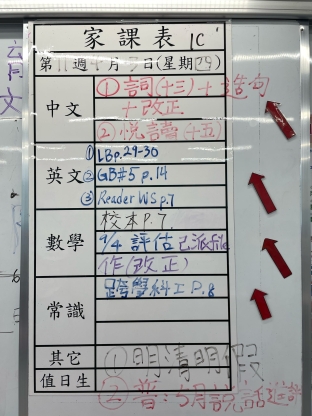 家課表 1C
第11週 月 日(星期 )
中文
①詞(十三)+造句
+改正
②悅言聲(十五)
英文
① LBp.29-30
② GB#5 p.14
③ Reader WS p.7
數學
校本P.7
1/4 評估 已派file
作(改正)
常識
跨學科工P.8
其它
①明清明假
值日生
②普:5月說話進評